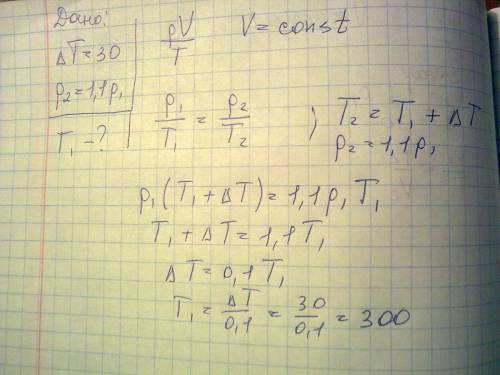 Дано:
ΔT=30
p₂=1,1p₁
T₁-?
pV/T V=const
p₁/T₁ = p₂/T₂ ; T₂ = T₁ + ΔT
p₂=1,1p₁
p₁(T₁+ΔT)=1,1p₁T₁
T₁+ΔT=1,1T₁
ΔT=0,1T₁
T₁=ΔT/0,1=30/0,1=300